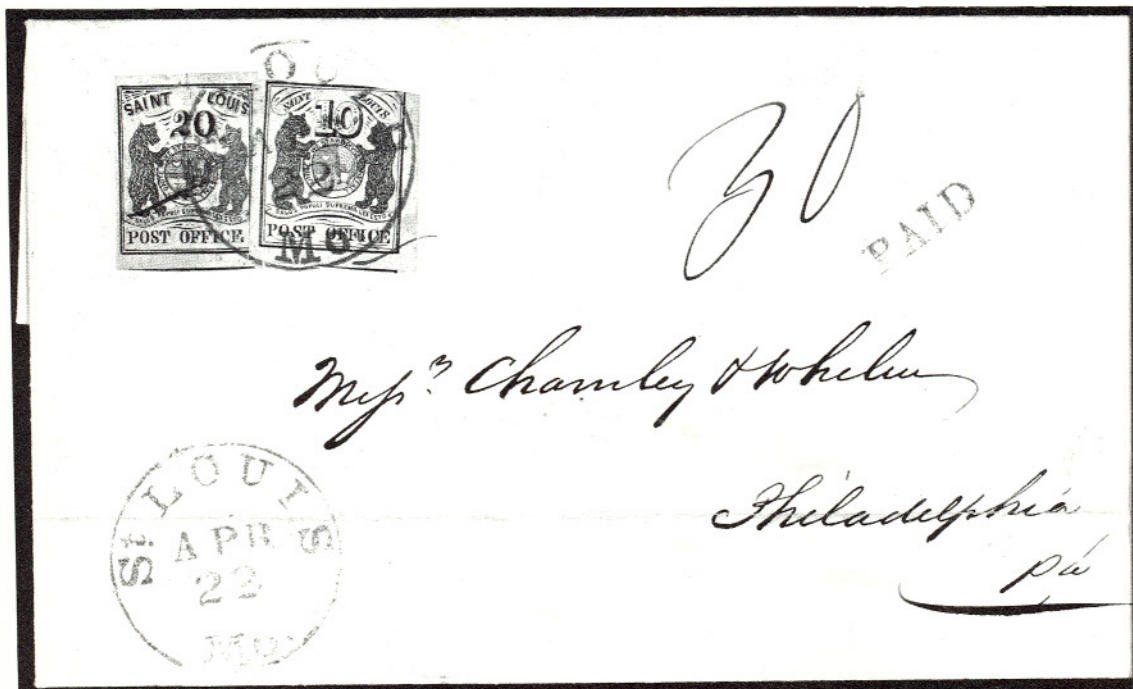 SAINT LOUIS
20
SALUS POPULI SUPREMA LEX ESTO
POST OFFICE.
SAINT LOUIS
10
POST OFFICE
MO
30
PAID
Mess.rs Charnley & Whelen
Philadelphia
Pa
St. LOUIS
APR
22
MO.